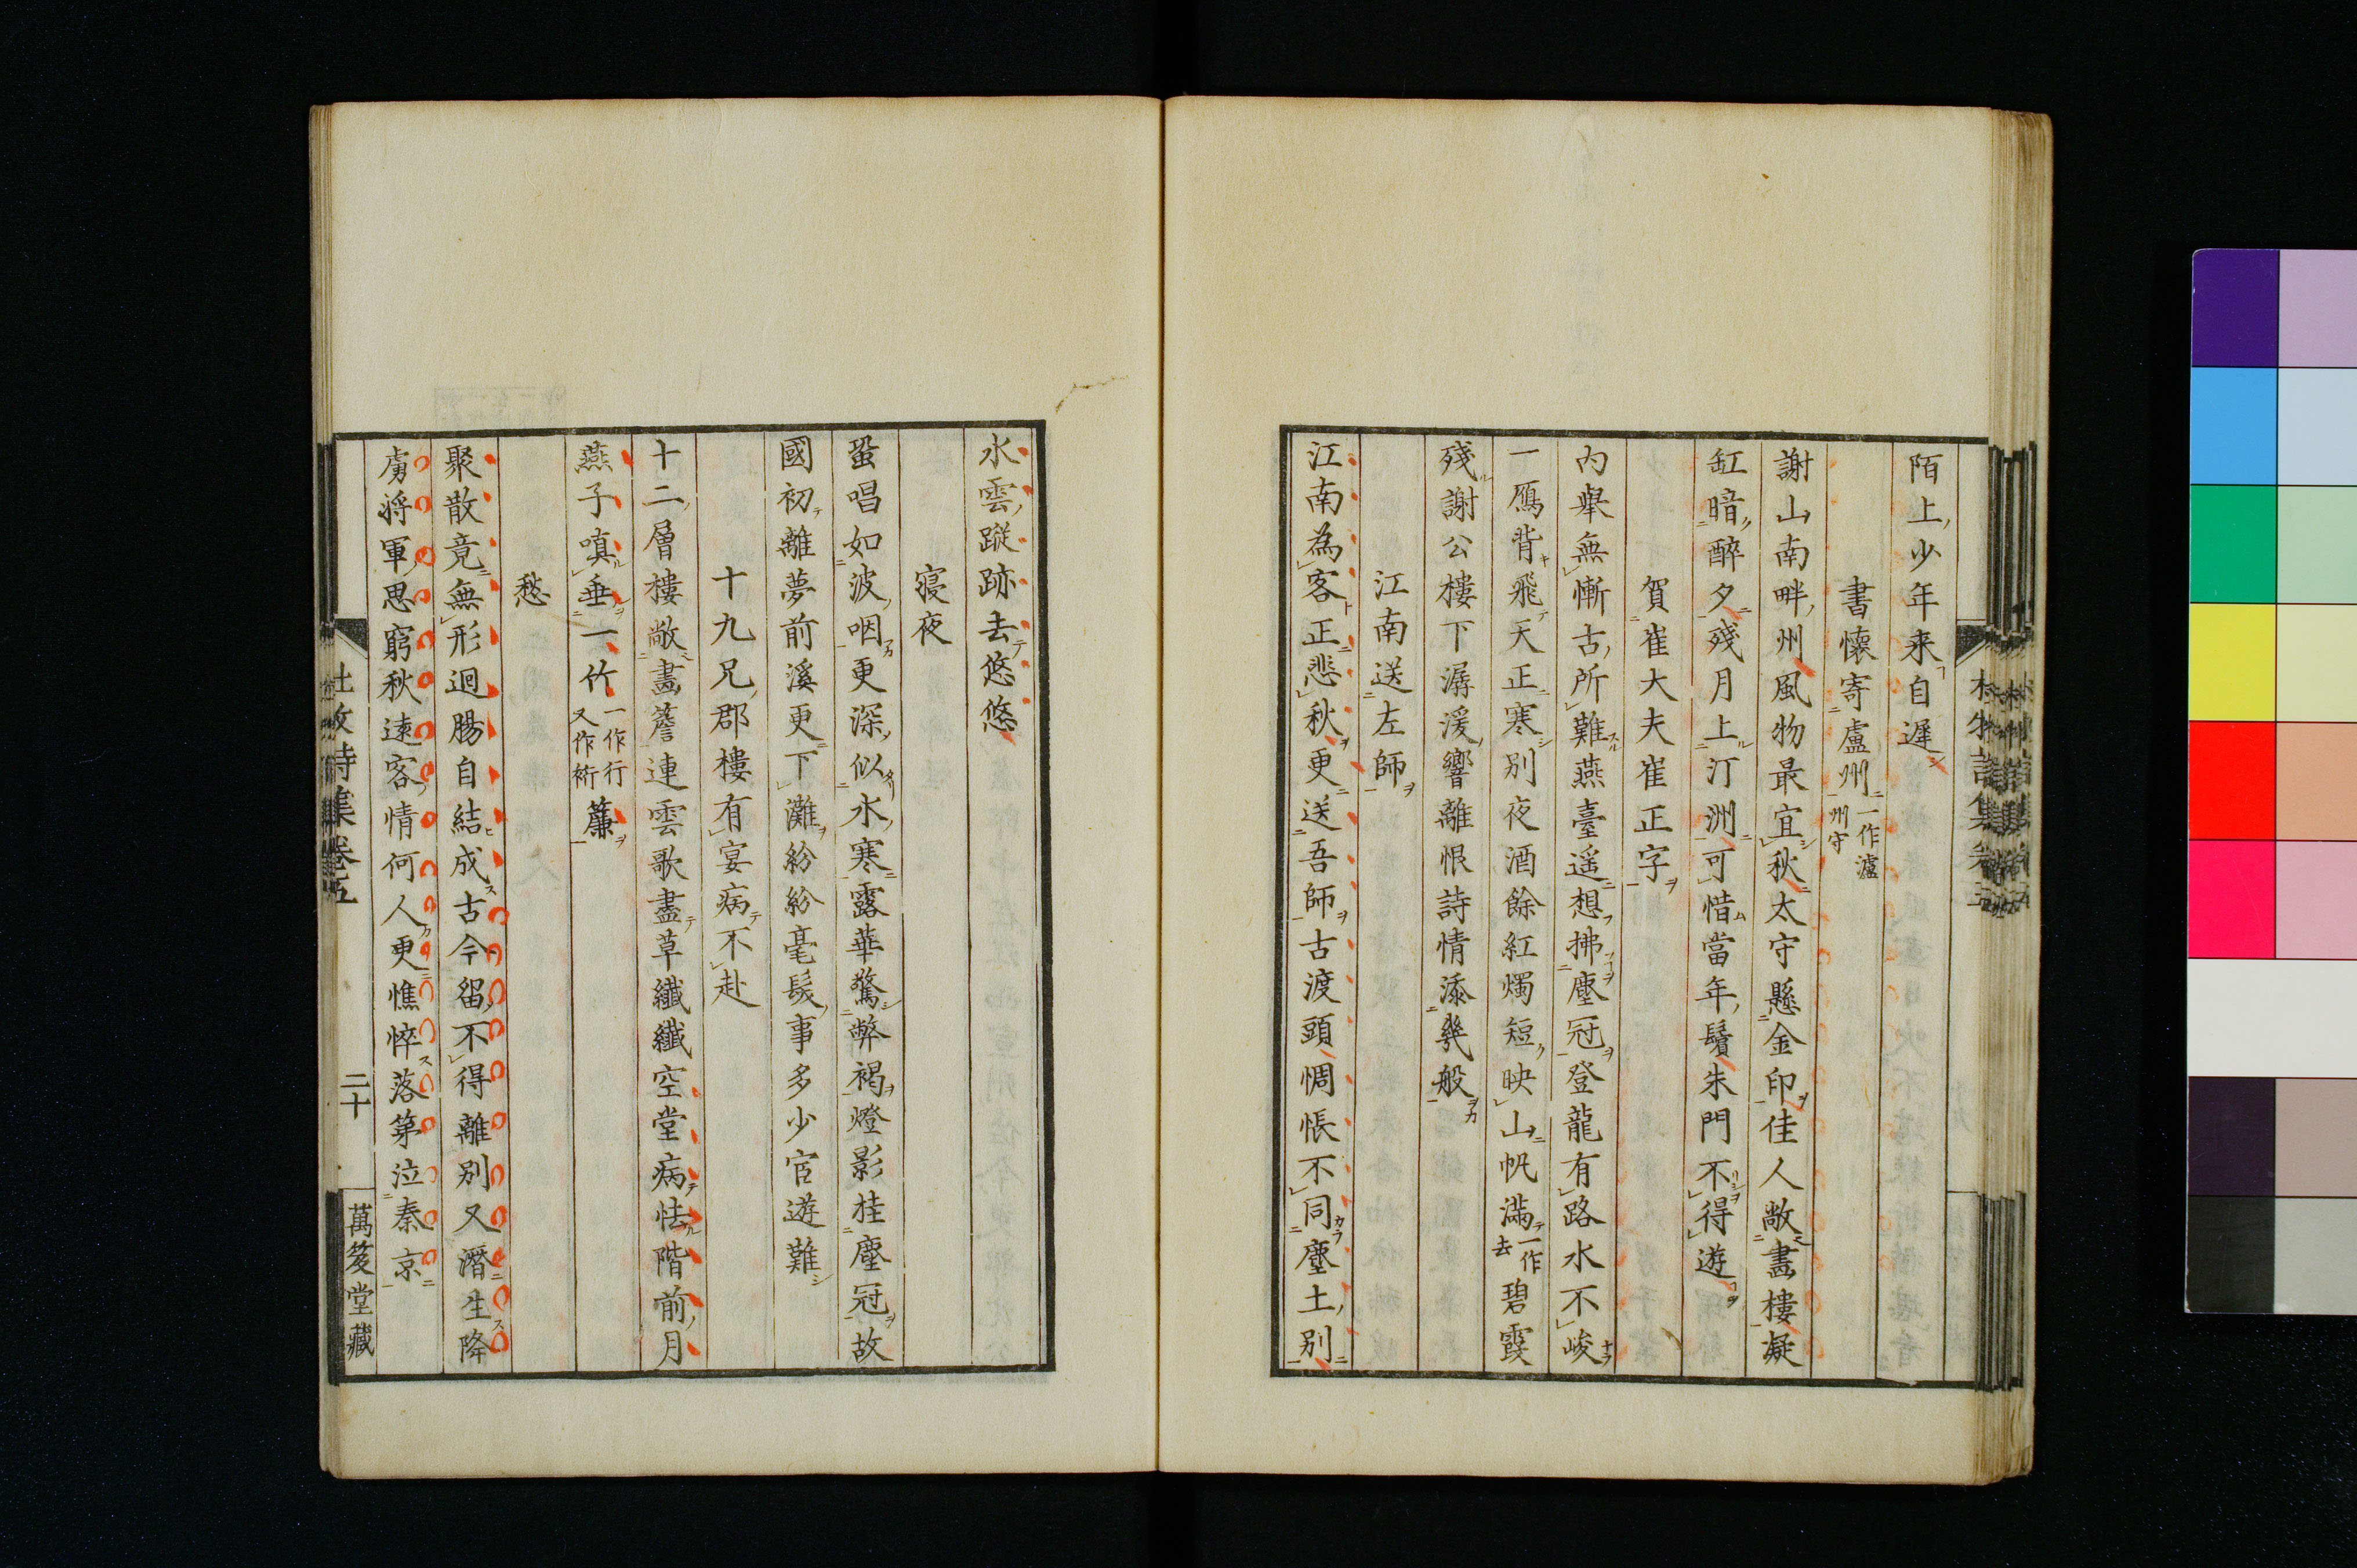 陌上少年来自遲
書懷寄盧州一作瀘州守
謝山南畔州風物最宜秋太守懸金印佳人敞畵樓凝
缸暗醉夕殘月上汀洲可惜當年鬢朱門不得遊
賀崔大夫崔正字
內舉無慚古所難燕臺遥想拂塵冠登龍有路水不峻
一鴈背飛天正寒別夜酒餘紅燭短映山帆滿一作去碧霞
殘謝公樓下潺湲響離恨詩情添幾般
江南送左師
江南為客正悲秋更送吾師古渡頭惆悵不同塵土別
水雲蹤跡去悠悠
寝夜
蛩唱如波咽更深似水寒露華驚弊褐燈影挂塵冠故
國初離夢前溪更下灘紛紛毫髮事多少宦遊難
十九兄郡樓有宴病不赴
十二層樓敞畵簷連雲歌盡草纖纖空堂病怯階前月
燕子嗔垂一竹一作行又作䘕簾
愁
聚散竟無形迴腸自結成古今留不得離別又潛生降
虜將軍思窮秋遠客情何人更憔悴落第泣秦京
杜牧詩集卷五
二十
萬笈堂藏